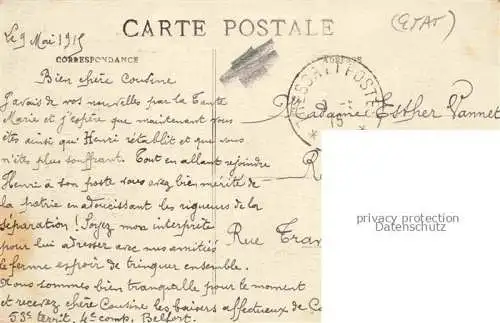 CARTE POSTALE
(ETAT)
Le 9 Mai 1915
CORRESPONDANCE
ADRESSE
Bien chère Cousine
J'avais de vos nouvelles par la Tante
Marie et j'espère que maintenant vous
êtes ainsi que Henri rétablit et que vous
n'êtes plus souffrant. Tout en allant rejoindre
Henri à son poste vous avez bien mérité de
la patrie en adoucissant les rigueurs de la
séparation ! Soyez mon interprète
pour lui adresser avec mes amitiés
le ferme espoir de trinquer ensemble.
Nous sommes bien tranquille pour le moment
et recevez chère Cousine les baisers affectueux de
53e territ. 4e comp. Belfort.
TRESOR ET POSTES
15
Madame Esther Vannet
R
Rue Tra
privacy protection
Datenschutz